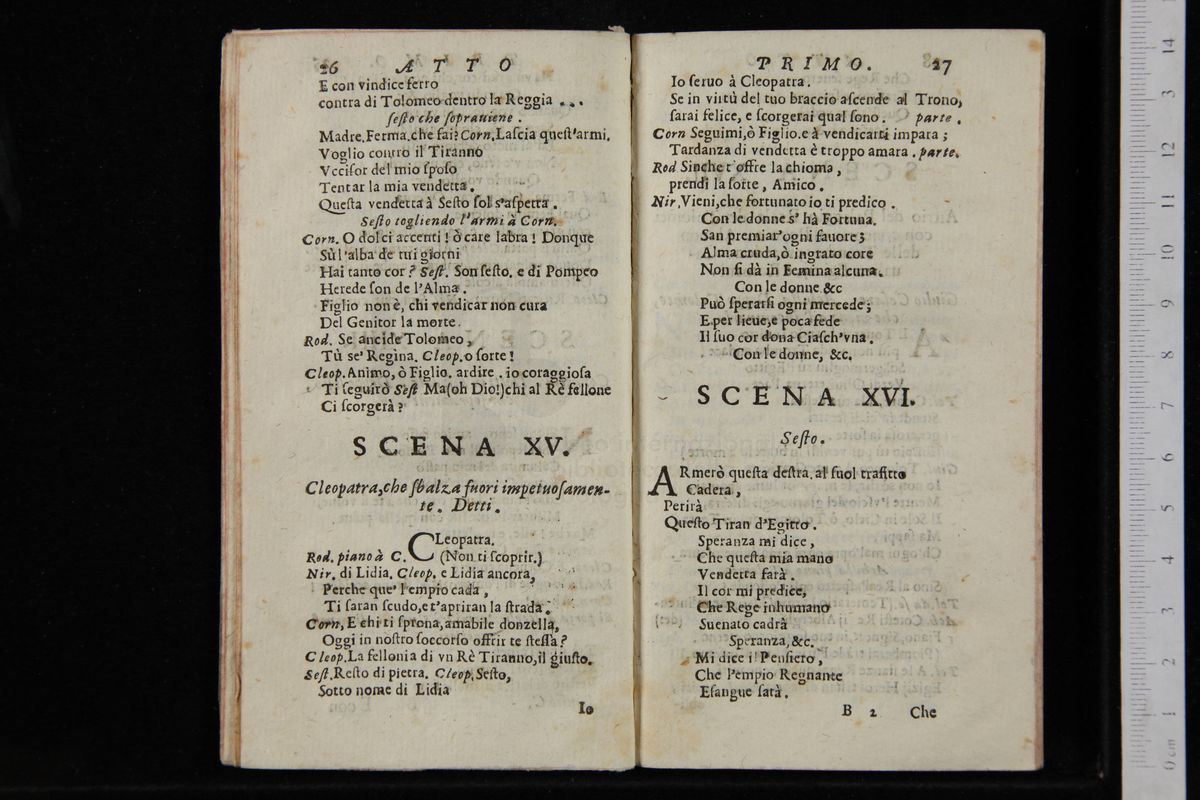 26 ATTO
E con vindice ferro
contra di Tolomeo dentro la Reggia . . .
ſeſto che ſoprauiene .
Madre. Ferma. che fai? Corn. Laſcia queſt'armi.
Voglio contro il Tiranno
Vcciſor del mio ſpoſo
Tentar la mia vendetta .
Queſta vendetta à Seſto ſol s'aſpetta .
Seſto togliendo l'armi à Corn.
Corn. O dolci accenti ! ò care labra ! Donque
Sù l'alba de tui giorni
Hai tanto cor ? Seſt. Son ſeſto. e di Pompeo
Herede ſon de l'Alma .
Figlio non è, chi vendicar non cura
Del Genitor la morte.
Rod. Se ancide Tolomeo ,
Tù se' Regina. Cleop. o ſorte !
Cleop. Animo, ò Figlio. ardire . io coraggioſa
Ti ſeguirò Seſt Ma (oh Dio!) chi al Rè fellone
Ci ſcorgerà ?
SCENA XV.
Cleopatra, che ſbalza fuori impetuoſamen-
te. Detti.
CLeopatra.
Rod. piano à C. (Non ti ſcoprir.)
Nir. di Lidia. Cleop. e Lidia ancora,
Perche que' l'empio cada ,
Ti ſaran ſcudo, e t'apriran la ſtrada .
Corn, E chi ti ſprona, amabile donzella,
Oggi in noſtro ſoccorſo offrir te ſteſſa ?
Cleop. La fellonia di vn Rè Tiranno, il giuſto.
Seſt. Reſto di pietra. Cleop. Seſto,
Sotto nome di Lidia
Io
PRIMO. 27
Io ſeruo à Cleopatra .
Se in virtù del tuo braccio aſcende al Trono,
ſarai felice, e ſcorgerai qual ſono . parte .
Corn Seguimi, ò Figlio. e à vendicarti impara ;
Tardanza di vendetta è troppo amara . parte.
Rod Sinche t'offre la chioma ,
prendi la ſorte , Amico .
Nir. Vieni, che fortunato io ti predico .
Con le donne s' hà Fortuna.
San premiar' ogni fauore ;
Alma cruda, ò ingrato core
Non ſi dà in Femina alcuna.
Con le donne &c
Può ſperarſi ogni mercede ;
E per lieue, e poca fede
Il ſuo cor dona Ciaſch'vna .
Con le donne, &c.
SCENA XVI.
Seſto.
ARmerò queſta deſtra. al ſuol trafitto
Cadera ,
Perirà
Queſto Tiran d'Egitto .
Speranza mi dice ,
Che queſta mia mano
Vendetta farà .
Il cor mi predice,
Che Rege inhumano
Suenato cadrà
Speranza, &c.
Mi dice il Penſiero ,
Che l'empio Regnante
Eſangue ſarà .
B 2 Che
0 cm 1 2 3 4 5 6 7 8 9 10 11 12 13 14